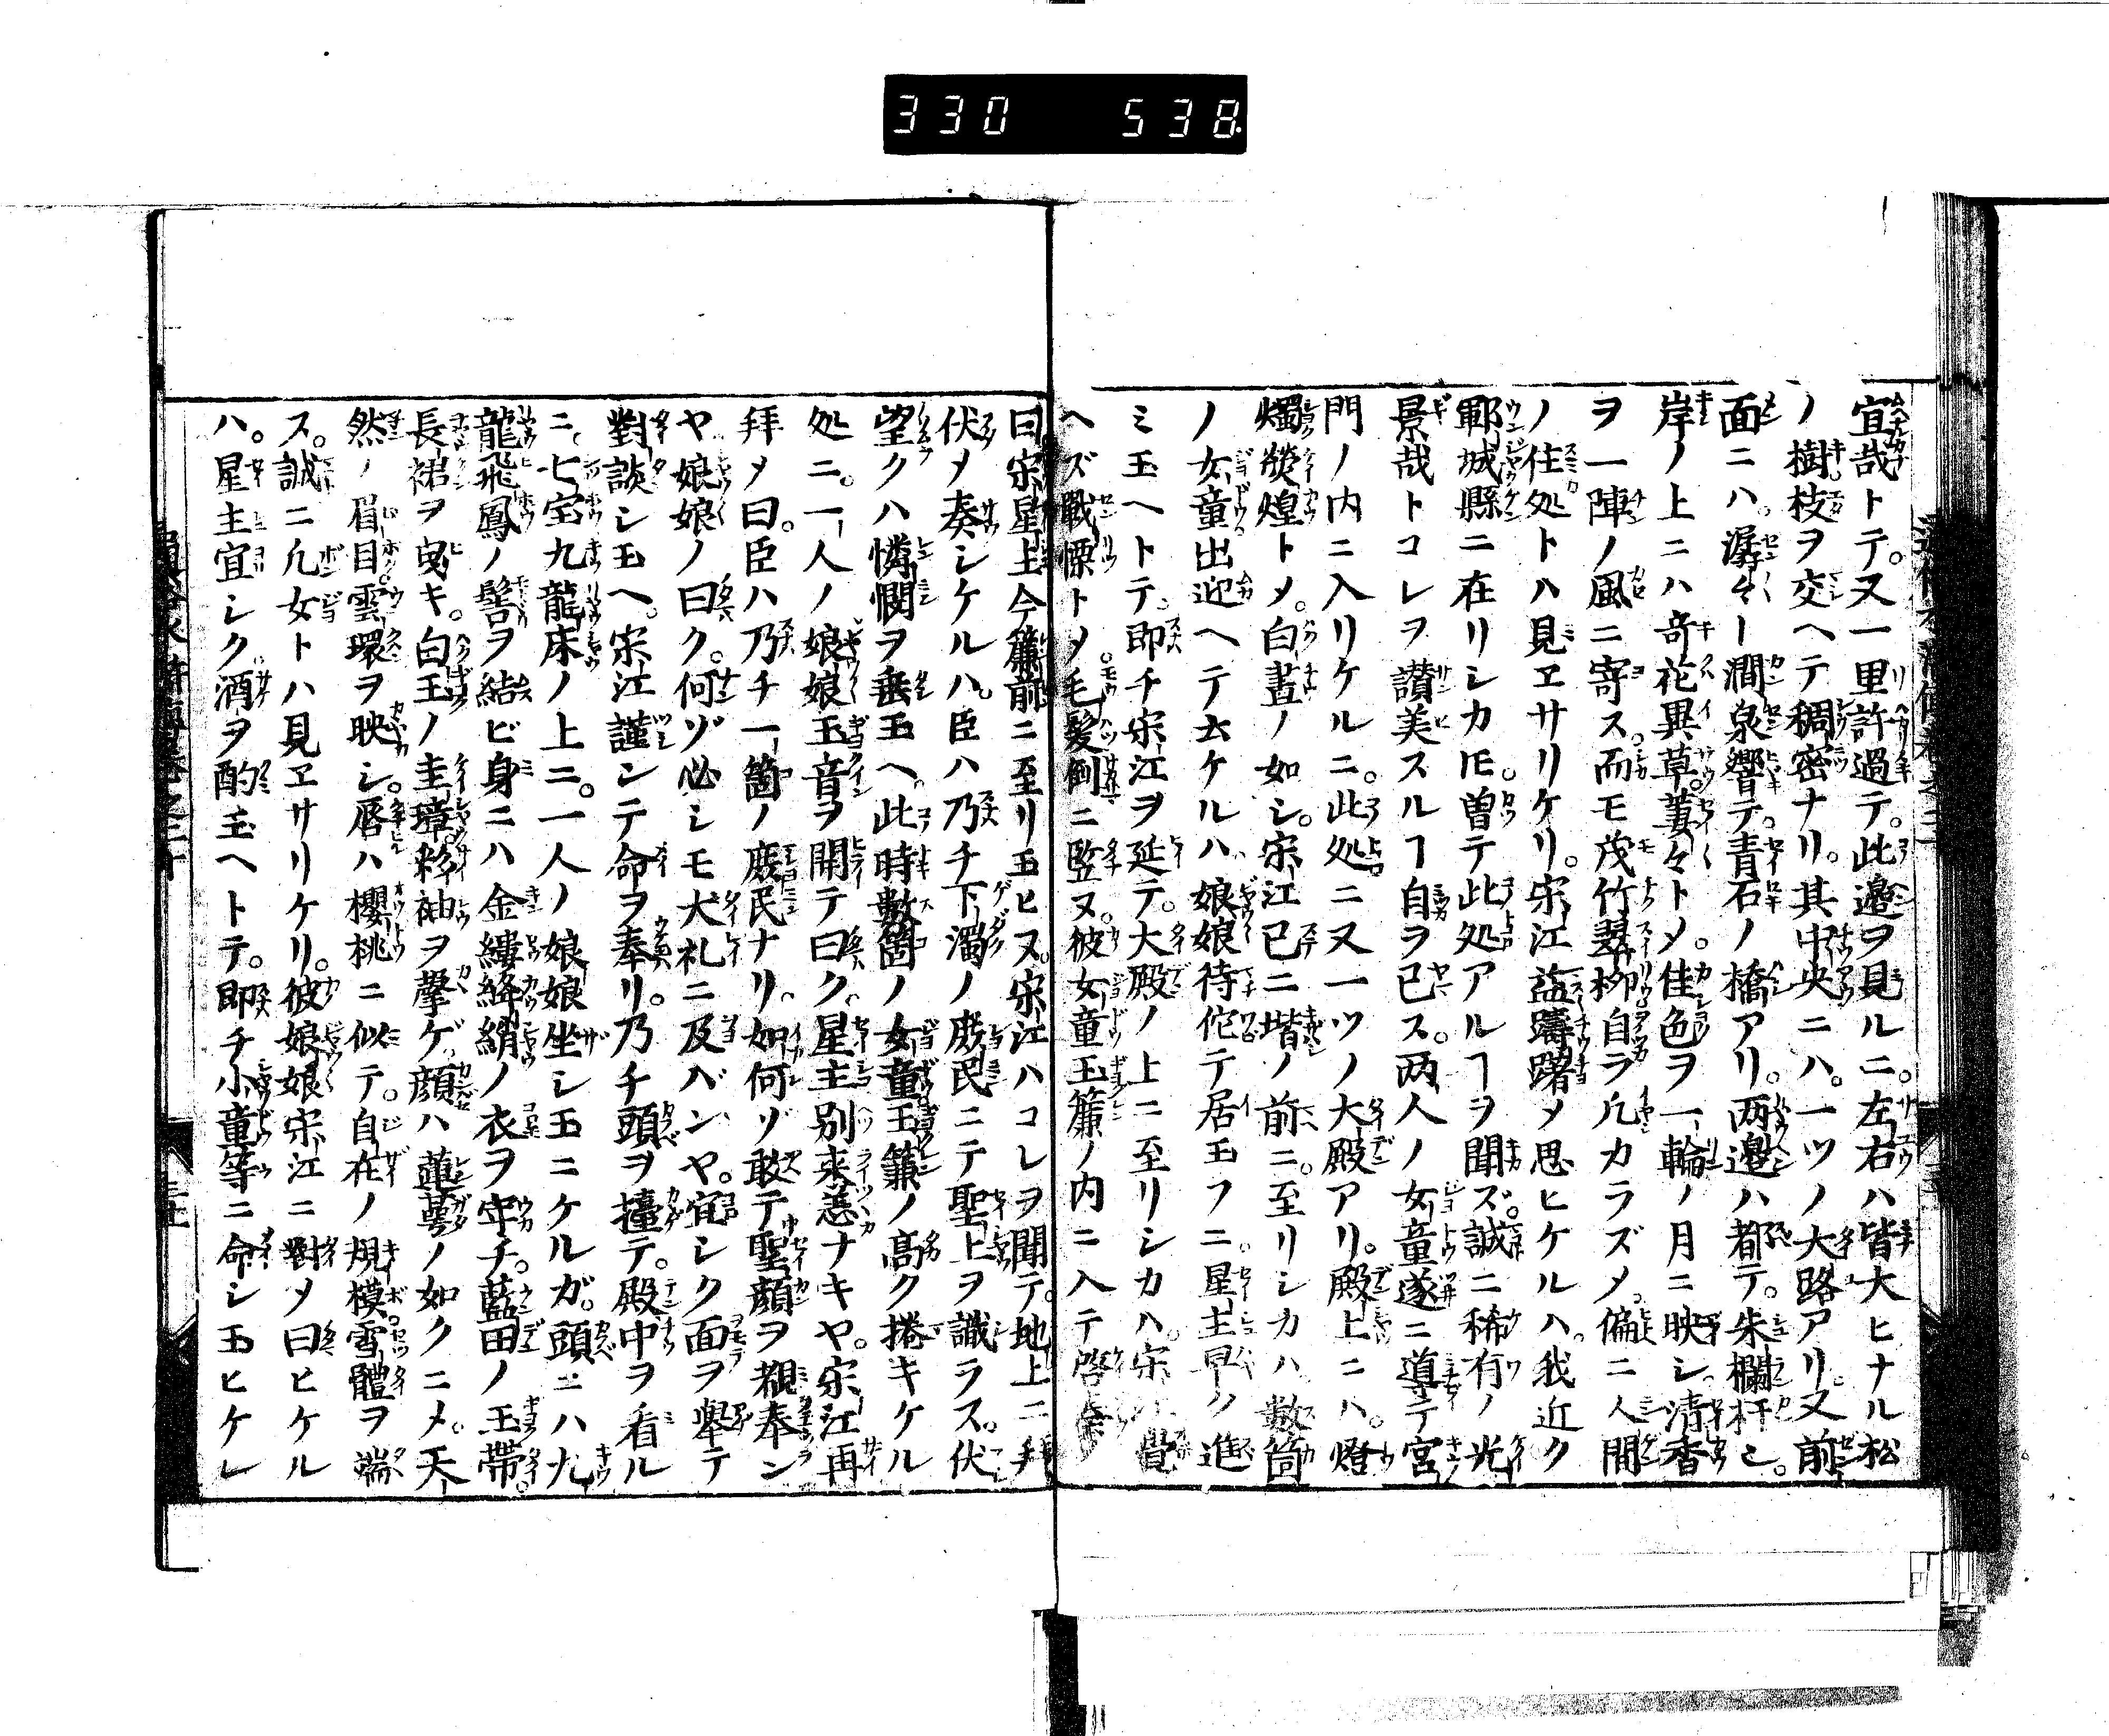 330 538
宜哉トテ。又一里許過テ。此邉ヲ見ルニ。左右ハ皆大ヒナル松
ノ樹。枝ヲ交ヘテ稠密ナリ。其中央ニハ。一ツノ大路アリ。又前
面ニハ。潺々ト澗泉響テ。青石ノ橋アリ。両邉ハ都テ。朱欄杆ニ。
岸ノ上ニハ竒花異草。萋々トメ。佳色ヲ一輪ノ月ニ映シ。清香
ヲ一陣ノ風ニ寄ス。而モ茂竹翠柳自ラ凢カラズメ。偏ニ人間
ノ住処トハ見ヱサリケリ。宋江益躊躇メ思ヒケルハ。我近ク
鄆城縣ニ在リシカ𪜈。曽テ此処アルヿヲ聞ズ。誠ニ稀有ノ光
景哉トコレヲ讃美スルヿ自ヲ已ス。両人ノ女童遂ニ導テ宮
門ノ内ニ入リケルニ。此処ニ又一ツノ大殿アリ。殿上ニハ。燈
燭熒煌トメ。白晝ノ如シ。宋江已ニ堦ノ前ニ。至リシカハ数箇
ノ女童出迎ヘテ云ケルハ。娘娘待佗テ居玉フニ。星主早ク進
ミ玉ヘトテ。即チ宋江ヲ延テ。大殿ノ上ニ至リシカハ。宋江覺
ヘズ戰慄トメ。毛髪倒ニ竪ヌ。彼女童玉簾ノ内ニ入テ啓奏
曰。宋星主今簾前ニ至リ玉ヒヌ。宋江ハコレヲ聞テ。地上ニ拜
伏メ奏シケルハ。臣ハ乃チ下濁ノ庶民ニテ聖上ヲ識ラス。伏
望クハ憐憫ヲ垂玉ヘ。此時數箇ノ女童玉簾ノ髙ク捲キケル
処ニ。一人ノ娘娘玉音ヲ開テ曰ク。星主别来恙ナキヤ。宋江再
拜メ曰。臣ハ乃チ一箇ノ庶民ナリ。如何ゾ敢テ聖顔ヲ覩奉ン
ヤ娘娘ノ曰ク。何ゾ必シモ大礼ニ及バンヤ。宜シク面ヲ擧テ
對談シ玉ヘ。宋江謹ンテ命ヲ奉リ。乃チ頭ヲ擡テ。殿中ヲ看ル
ニ。七宝九龍床ノ上ニ。一人ノ娘娘坐シ玉ニケルガ。頭ニハ九
龍飛鳳ノ髻ヲ結ビ身ニハ金縷絳綃ノ衣ヲ穿チ。藍田ノ玉帯。
長裙ヲ曳キ。白玉ノ圭璋彩袖ヲ擎ゲ。顔ハ蓮萼ノ如クニメ。天
然ノ眉目雲環ヲ映シ。唇ハ櫻桃ニ似テ。自在ノ規模雪體ヲ端
ス。誠ニ凢女トハ見ヱサリケリ。彼娘娘宋江ニ對メ曰ヒケル
ハ。星主宜シク酒ヲ酌玉ヘトテ。即チ小童等ニ命シ玉ヒケレ